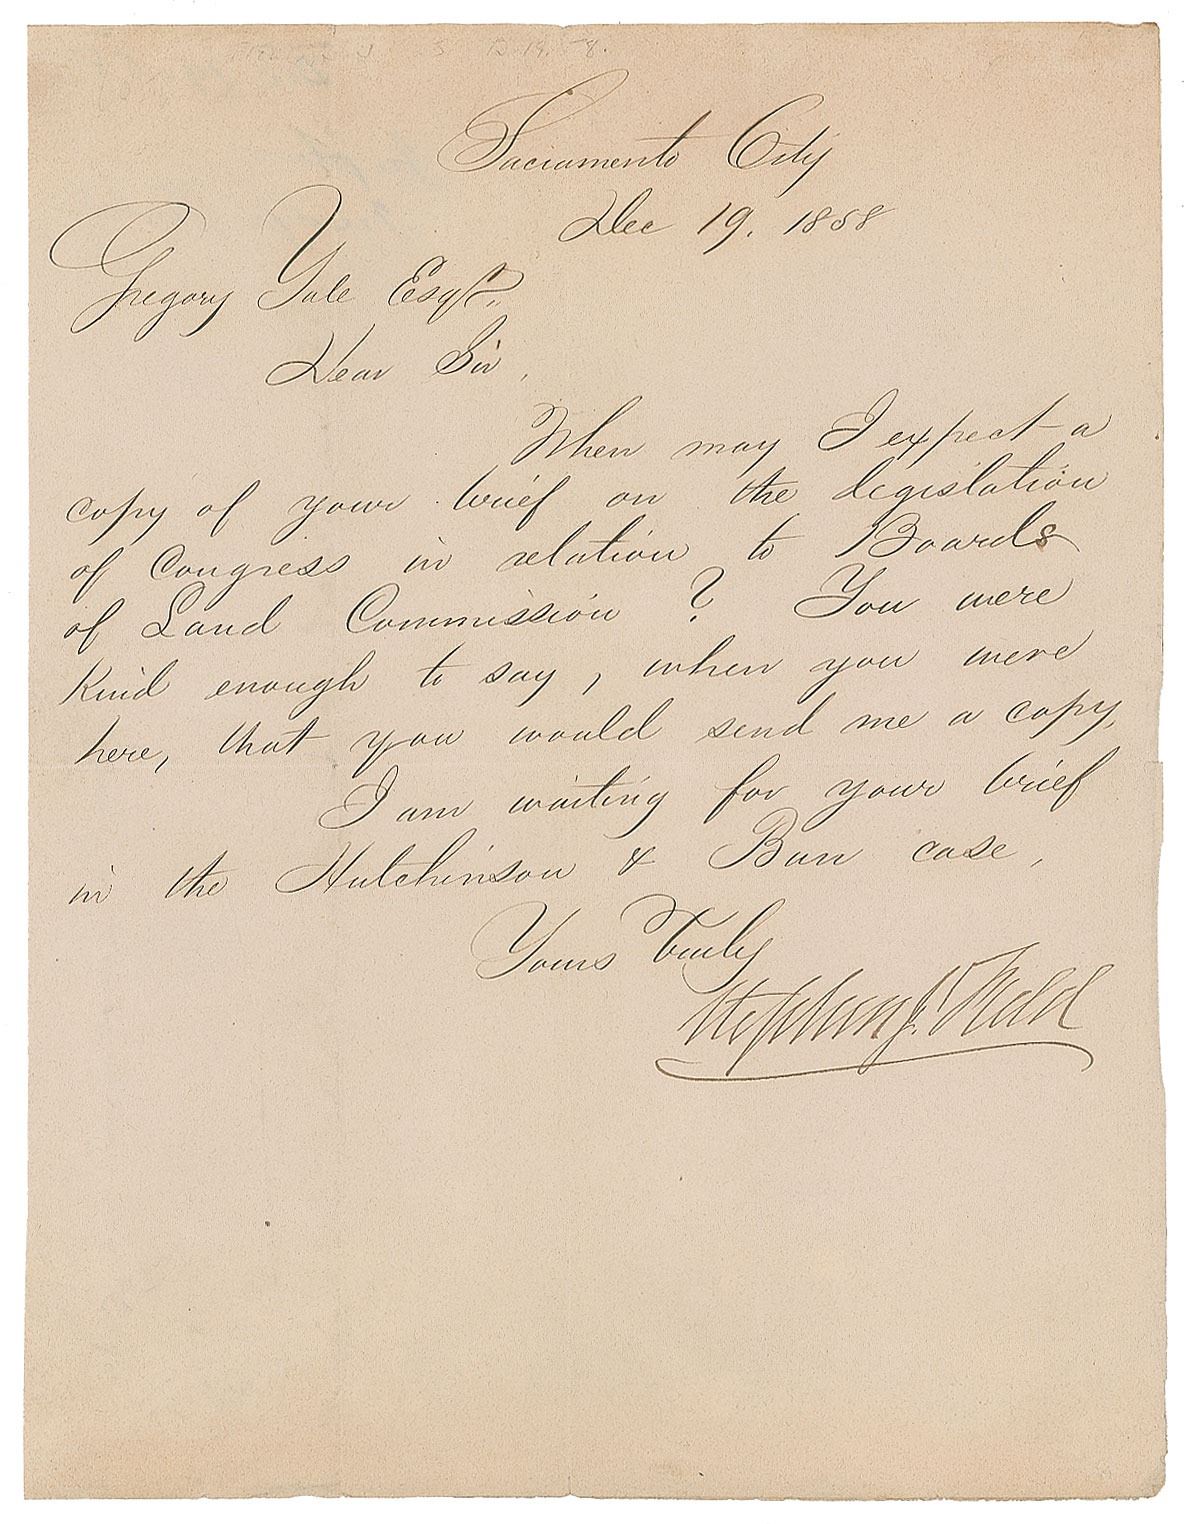 Sacramento City
Dec 19. 1858
Gregory Yale Esqr.
Dear Sir,
When may I expect a
copy of your brief on the legislation
of Congress in relation to Boards
of Land Commission ? You were
kind enough to say, when you were
here, that you would send me a copy.
I am waiting for your brief
in the Hutchinson & Burr case.
Yours Truly
Stephen J. Field